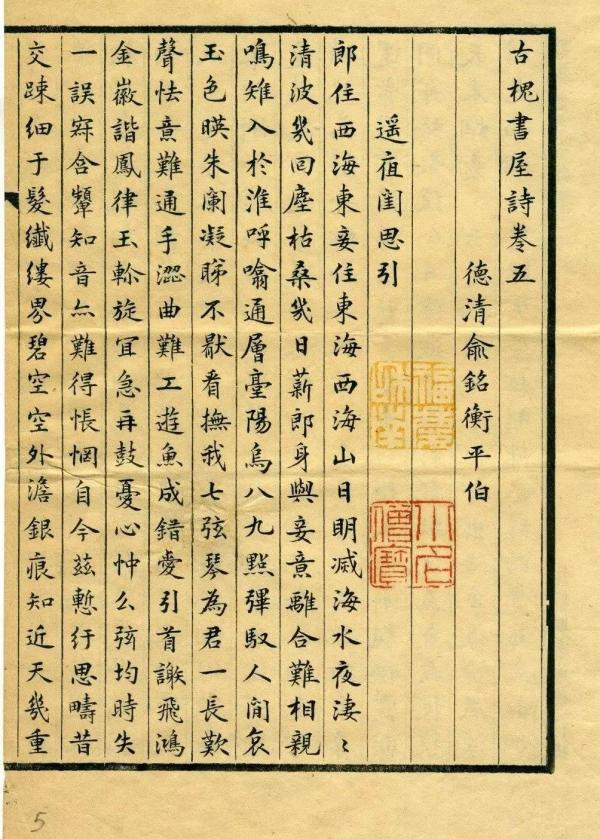 古槐書屋詩卷五
德清俞銘衡平伯
遥夜閨思引
郎住西海東妾住東海西海山日明滅海水夜淒〻
清波幾回塵枯桑幾日薪郎身與妾意離合難相親
鳴雉入於淮呼噏通層臺陽烏八九點彈馭人閒哀
玉色暎朱闌凝睇不厭看撫我七弦琴為君一長歎
聲怯意難通手澀曲難工遊魚成錯愛引首謝飛鴻
金徽諧鳳律玉軫旋宜急再鼓憂心忡么弦均時失
一誤寐含顰知音亦難得悵惘自今茲慙行思疇昔
交踈細于髮纖縷界碧空空外澹銀痕知近天幾重
5